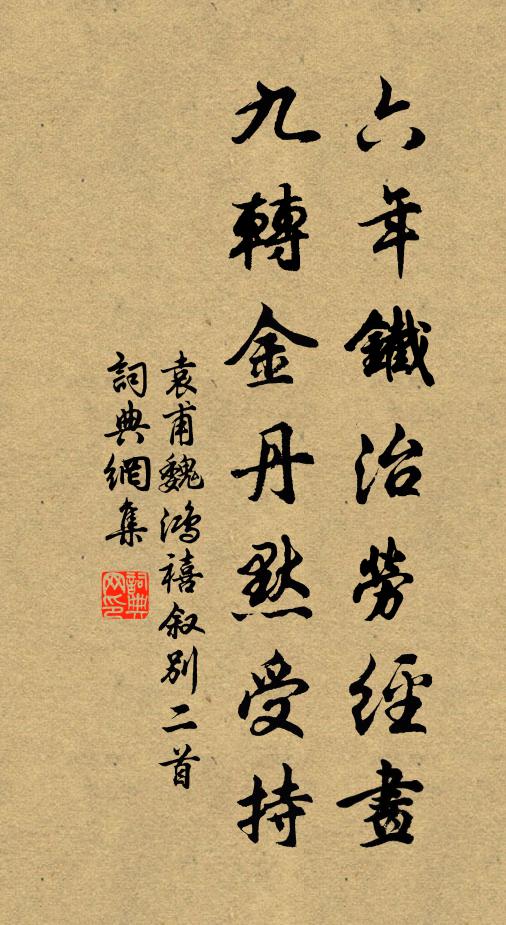 六年鐵治勞經畫
九轉金丹默受持
袁甫魏鴻禧叙別二首
詞典網集
詞典网印